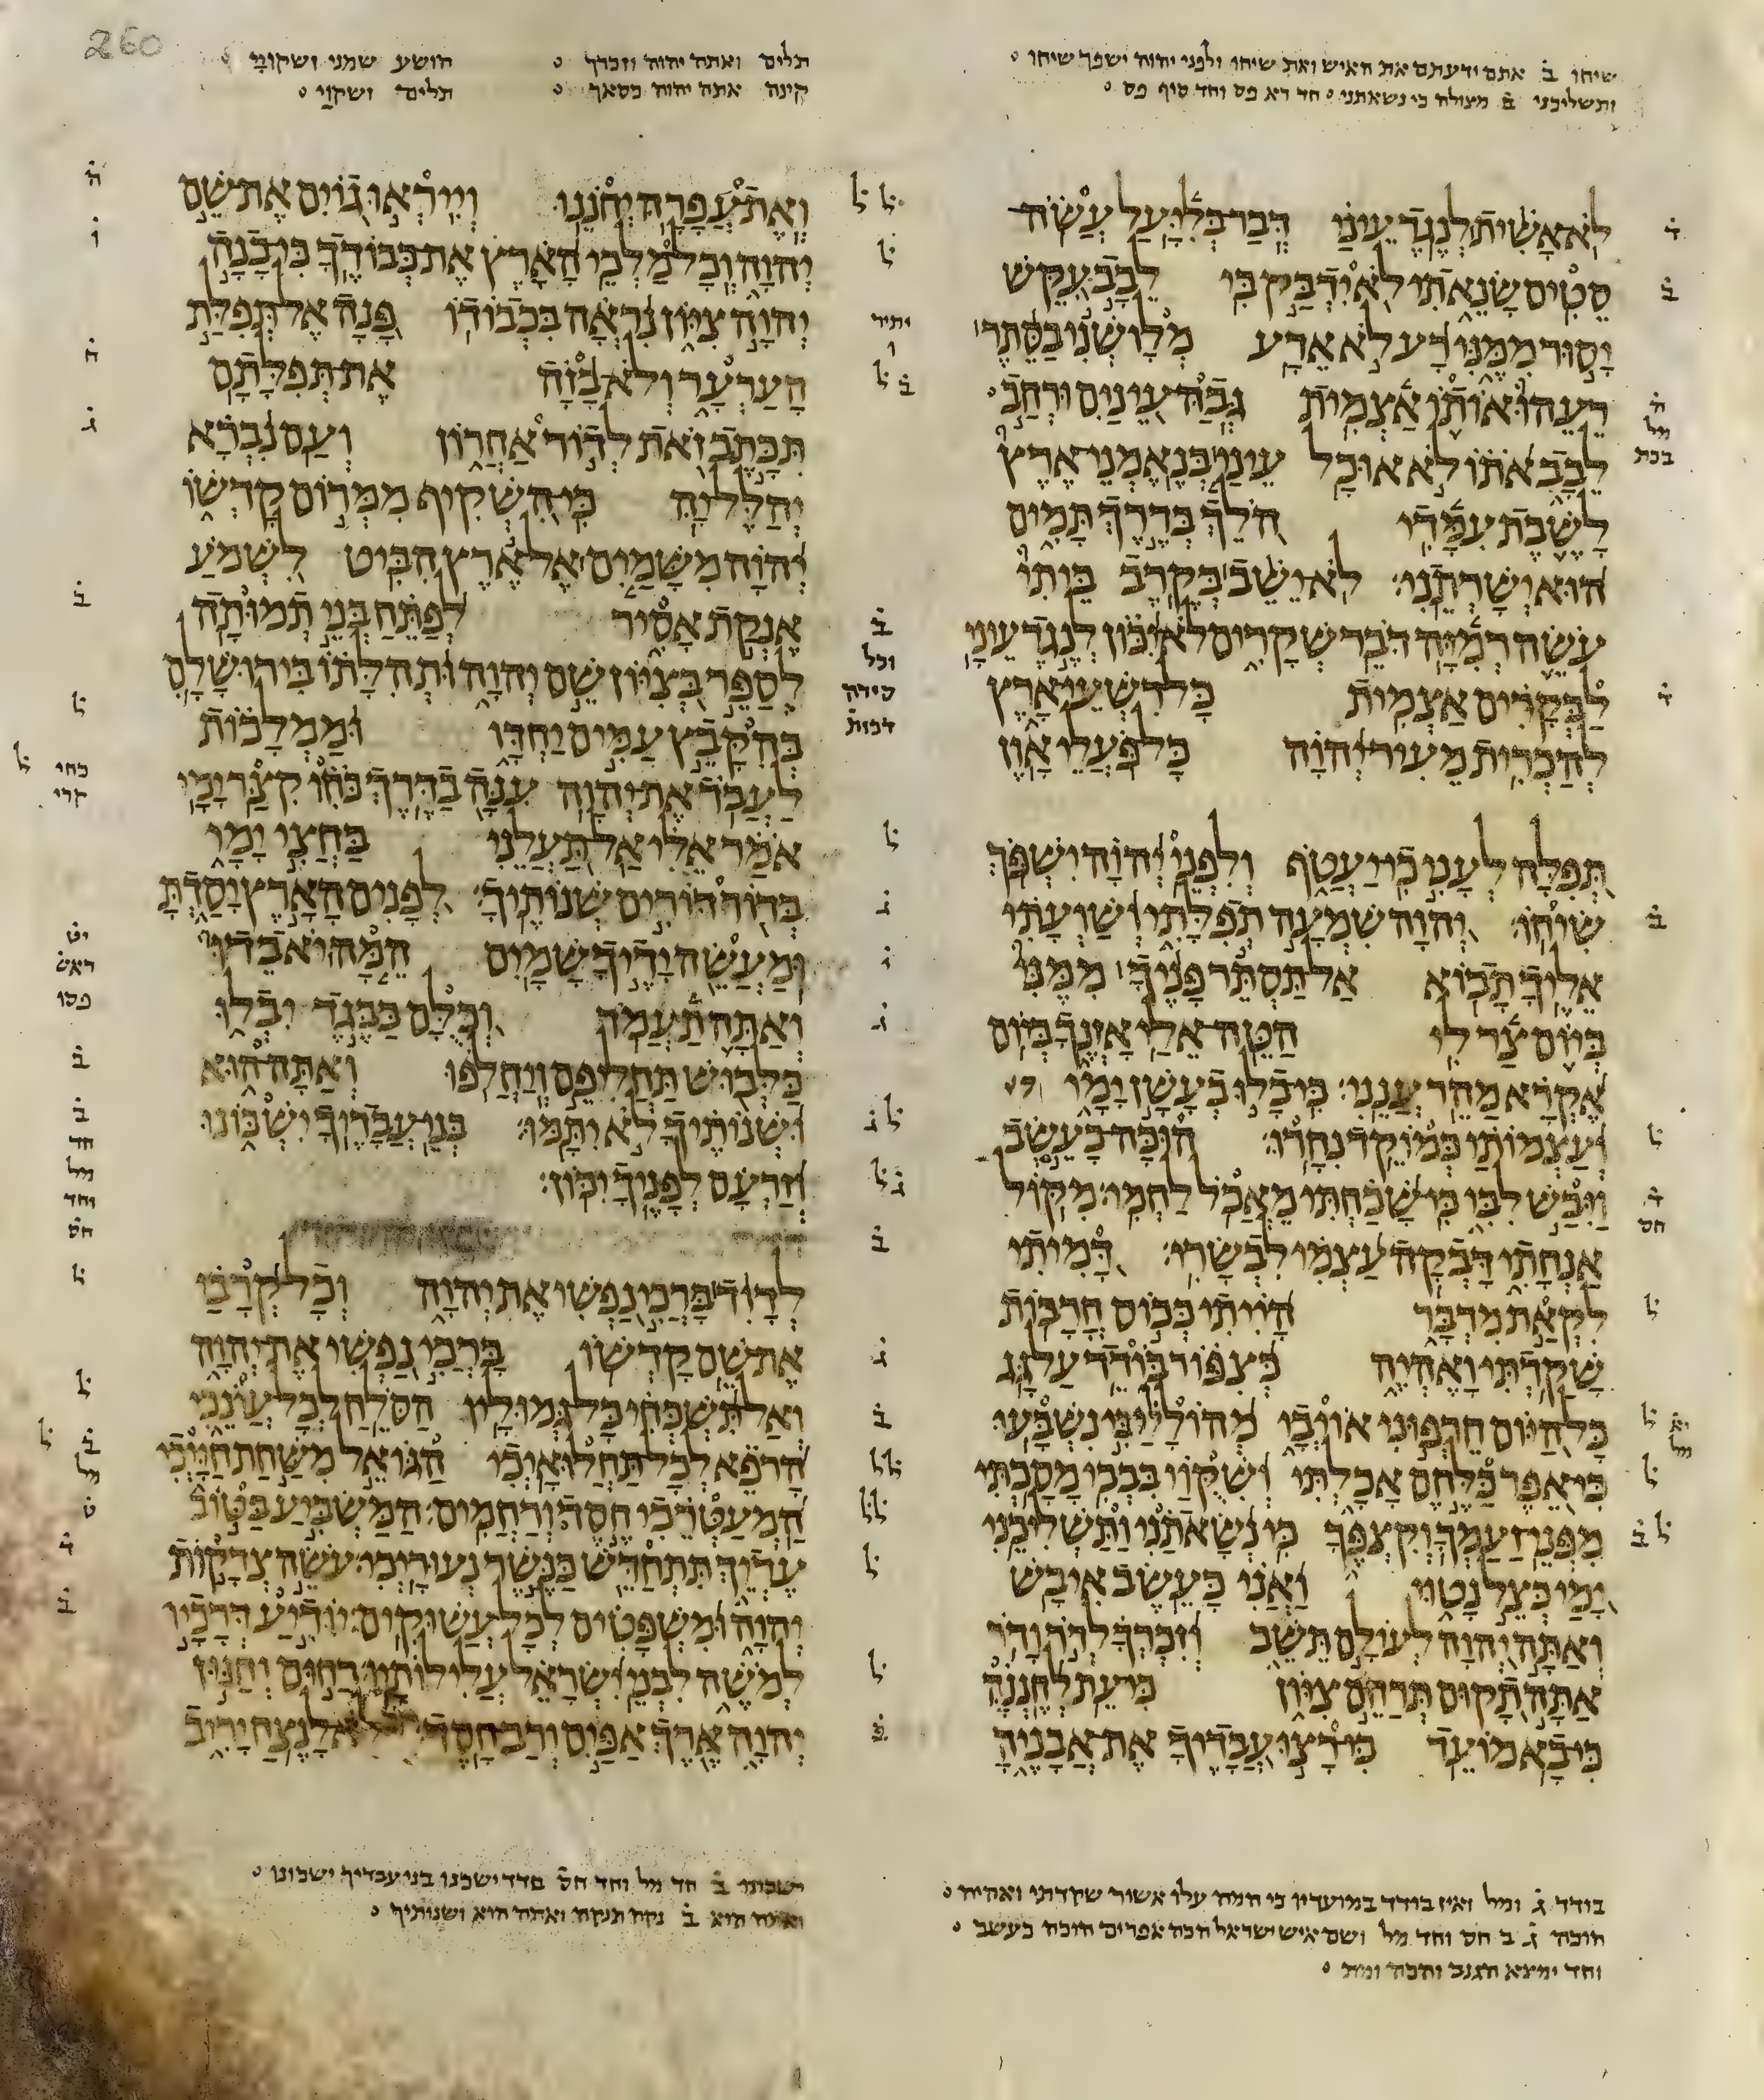 260
שיחו ב אתם ידעתם את האיש ואת שיחו ולפני יהוה ישפך שיחו
ותשליכני ב מצולה כי נשאתני חד רא פס וחד סוף פס
לא אשית לנגד עיני דבר בליעל עשה
סטים שנאתי לא ידבק בי לבב עקש
יסור ממני רע לא אדע מלושני בסתר
רעהו אותו אצמית גבה עינים ורחב
לבב אתו לא אוכל עיני בנאמני ארץ
לשבת עמדי הלך בדרך תמים
הוא ישרתני לא ישב בקרב ביתי
עשה רמיה דבר שקרים לא יכון לנגד עיני
לבקרים אצמית כל רשעי ארץ
להכרית מעיר יהוה כל פעלי און
תפלה לעני כי יעטף ולפני יהוה ישפך
שיחו יהוה שמעה תפלתי ושועתי
אליך תבוא אל תסתר פניך ממני
ביום צר לי הטה אלי אזנך ביום
אקרא מהר ענני כי כלו בעשן ימי
ועצמותי כמוקד נחרו הוכה כעשב
ויבש לבי כי שכחתי מאכל לחמי מקול
אנחתי דבקה עצמי לבשרי דמיתי
לקאת מדבר הייתי ככוס חרבות
שקדתי ואהיה כצפור בודד על גג
כל היום חרפוני אויבי מהוללי בי נשבעו
כי אפר כלחם אכלתי ושקוי בבכי מסכתי
מפני זעמך וקצפך כי נשאתני ותשליכני
ימי כצל נטוי ואני כעשב איבש
ואתה יהוה לעולם תשב וזכרך לדר ודר
אתה תקום תרחם ציון כי עת לחננה
כי בא מועד כי רצו עבדיך את אבניה
בודד ג ומל ואין בודד במועדיו כי המה עלו אשור שקדתי ואהיה
הוכה ג ב חס וחד מל ושם איש ישראל הכה אפרים הוכה כעשב
וחד ימצא הגנב והכה ומת
תלים ואתה יהוה וזכרך
קינה אתה יהוה כסאך
הושע שמני ושקויי
תלים ושקוי
ואת עפרה יחננו וייראו גוים את שם
יהוה וכל מלכי הארץ את כבודך כי בנה
יהוה ציון נראה בכבודו פנה אל תפלת
הערער ולא בזה את תפלתם
תכתב זאת לדור אחרון ועם נברא
יהלל יה כי השקיף ממרום קדשו
יהוה משמים אל ארץ הביט לשמע
אנקת אסיר לפתח בני תמותה
לספר בציון שם יהוה ותהלתו בירושלם
בהקבץ עמים יחדו וממלכות
לעבד את יהוה ענה בדרך כחו קצר ימי
אמר אלי אל תעלני בחצי ימי
בדור דורים שנותיך לפנים הארץ יסדת
ומעשה ידיך שמים המה יאבדו
ואתה תעמד וכלם כבגד יבלו
כלבוש תחליפם ויחלפו ואתה הוא
ושנותיך לא יתמו בני עבדיך ישכונו
וזרעם לפניך יכון
לדוד ברכי נפשי את יהוה וכל קרבי
את שם קדשו ברכי נפשי את יהוה
ואל תשכחי כל גמוליו הסלח לכל עונכי
הרפא לכל תחלואיכי הגואל משחת חייכי
המעטרכי חסד ורחמים המשביע בטוב
עדיך תתחדש כנשר נעוריכי עשה צדקות
יהוה ומשפטים לכל עשוקים יודיע דרכיו
למשה לבני ישראל עלילותיו רחום וחנון
יהוה ארך אפים ורב חסד לא לנצח יריב
ישכונו ב חד מל וחד חס בדד ישכנו בני עבדיך ישכונו
ואתה הוא ב נקה תנקה ואתה הוא ושנותיך